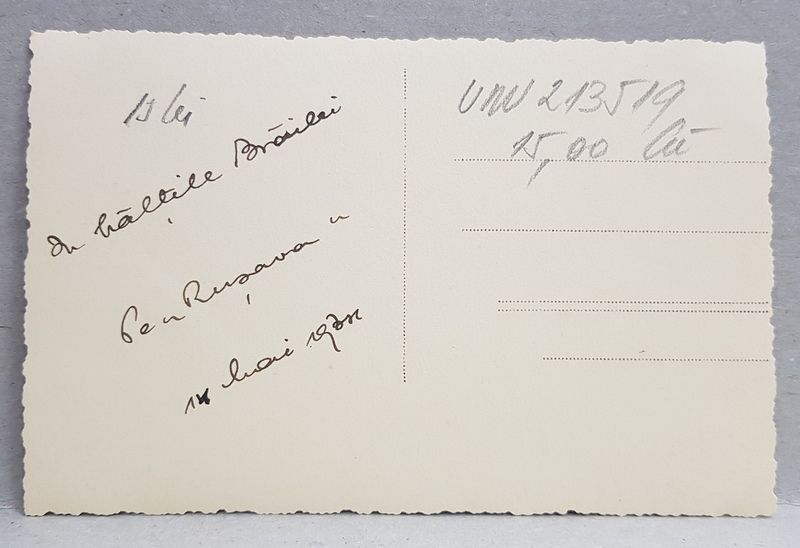 15 lei
În bălțile Brăilei
Pe „Rușava"
Mai
UNU 213519
15,00 lei